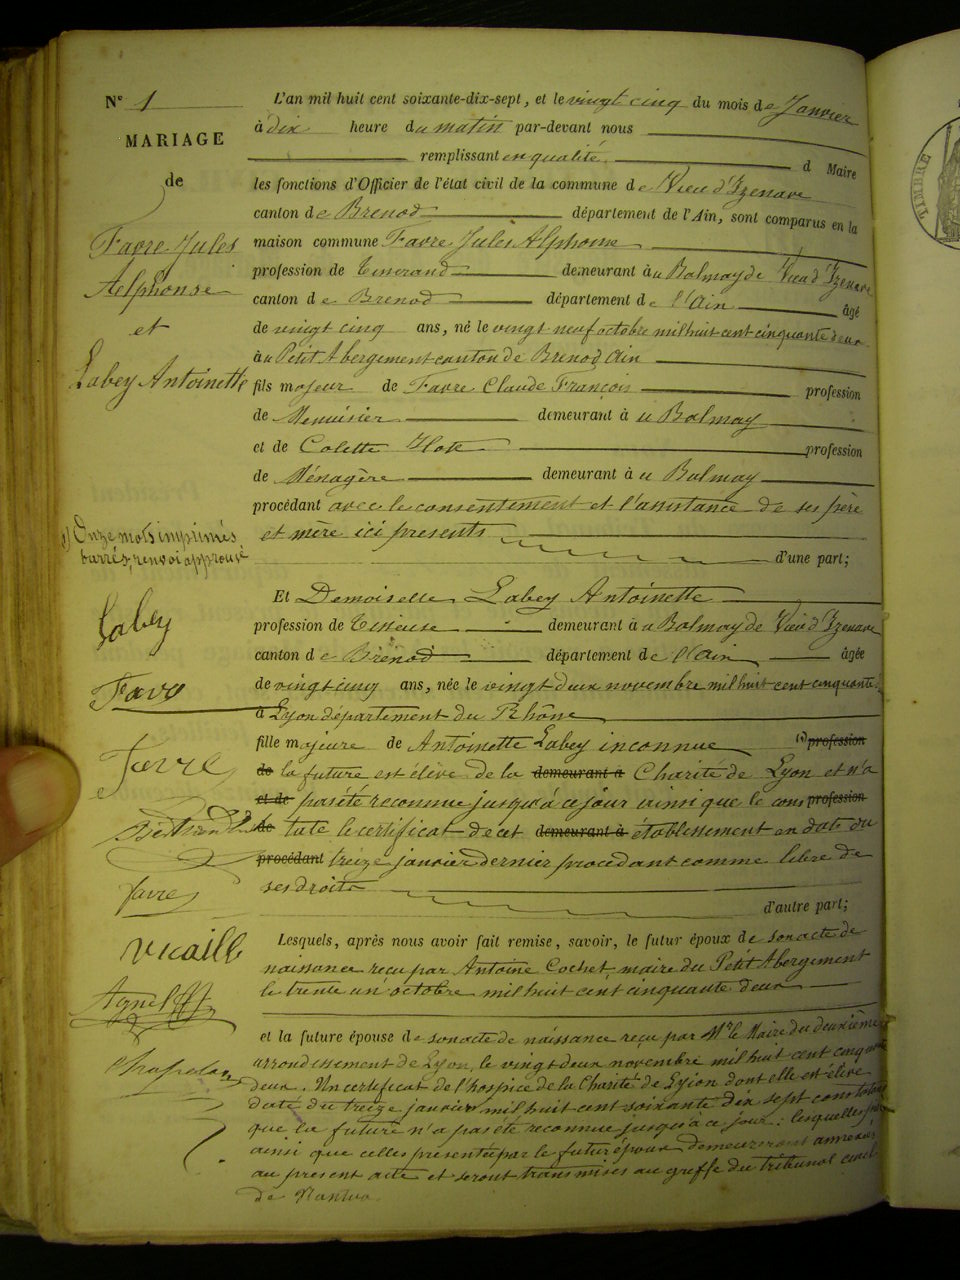 N° 1
MARIAGE
de
Favre Jules
Alphonse
et
Labey Antoinette
L'an mil huit cent soixante-dix-sept, et le vingt cinq du mois de Janvier
à dix heure du matin par-devant nous
remplissant en qualité d Maire
les fonctions d'Officier de l'état civil de la commune de Vieu d'Izenave
canton de Brenod département de l'Ain, sont comparus en la
maison commune Favre Jules Alphonse
profession de Tisserand demeurant à u Balmay de Vieu d'Izenave
canton de Brenod département de l'Ain âgé
de vingt cinq ans, né le vingt neuf octobre mil huit cent cinquante deux
à u Petit Abergement canton de Brenod Ain
fils majeur de Favre Claude François profession
de Menuisier demeurant à u Balmay
et de Colette profession
de Ménagère demeurant à u Balmay
procédant avec le consentement et l'assistance de ses père
et mère ici presents
d'une part;
Et Demoiselle Labey Antoinette
profession de Tisseuse demeurant à u Balmay de Vieu d'Izenave
canton de Brénod département de l'Ain âgée
de vingt cinq ans, née le vingt deux novembre mil huit cent cinquante
à Lyon département du Rhône
fille majeure de Antoinette Labey inconnue (1) profession
de la future est élève de la demeurant à Charité de Lyon et n'a
et de pas été reconnue jusqu'à ce jour ainsi que le cons profession
de tate le certificat de cet demeurant à établissement en date du
procédant treize janvier dernier procédant comme libre de
ses droits
d'autre part;
1) Onze mots imprimés
barrés, renvoi approuvé
Labey
Favre
Favre
Favre
Vicaille
Agnel
Lesquels, après nous avoir fait remise, savoir, le futur époux de son acte de
naissance reçu par Antoine Cochet, maire du Petit Abergement
le trente un octobre mil huit cent cinquante deux
et la future épouse de son acte de naissance reçu par Mr le Maire du deuxième
arrondissement de Lyon, le vingt deux novembre mil huit cent cinquante
deux. Un certificat de l'hospice de la Charité de Lyion dont elle est élève
daté du treize janvier mil huit cent soixante dix sept constatant
que la future n'a pas été reconnue jusqu'à ce jour: lesquelles
ainsi que celles présentée par le futur époux demeureront annexées
au présent acte et seront transmises au greffe du tribunal civil
de Nantua
TIMBRE